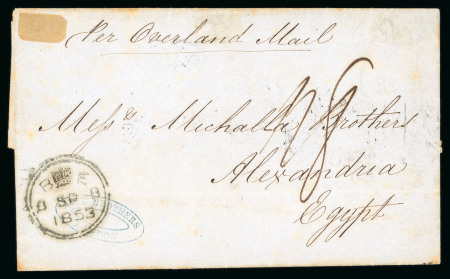 Per Overland Mail
Mess.rs Michalla Brothers
Alexandria
Egypt
8 SP 8
1853
BROTHERS